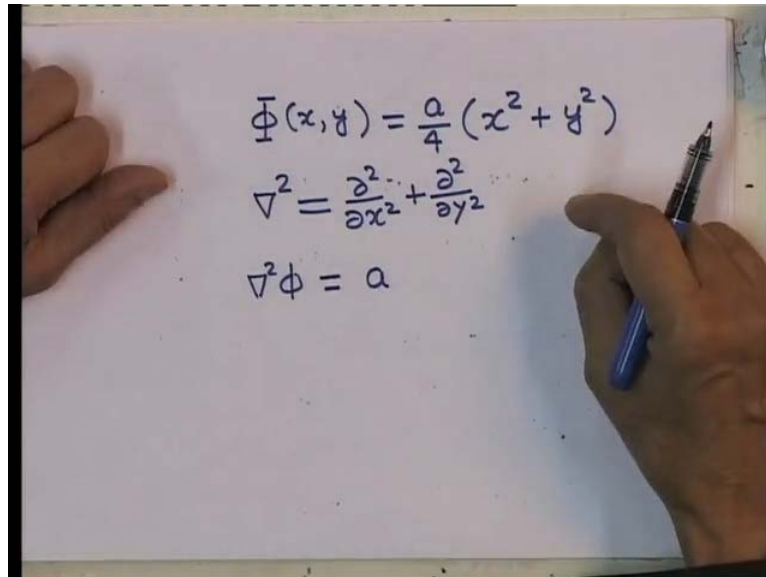 Φ(x,y) = a/4 (x² + y²)
∇² = ∂²/∂x² + ∂²/∂y²
∇²ϕ = a